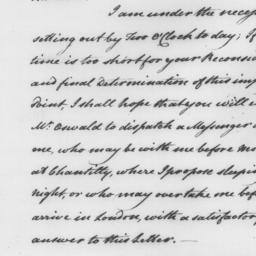 I am under the neces
setting out by Two O'Clock to day; If
time is too short for your Reconsi
and final Determination of this imp
Point, I shall hope that you will e
Mr. Oswald to dispatch a Messenger
me, who may be with me before Mo
at Chantilly, where I propose sleepi
night, or who may overtake me bef
arrive in London, with a satisfactor
answer to this Letter. —